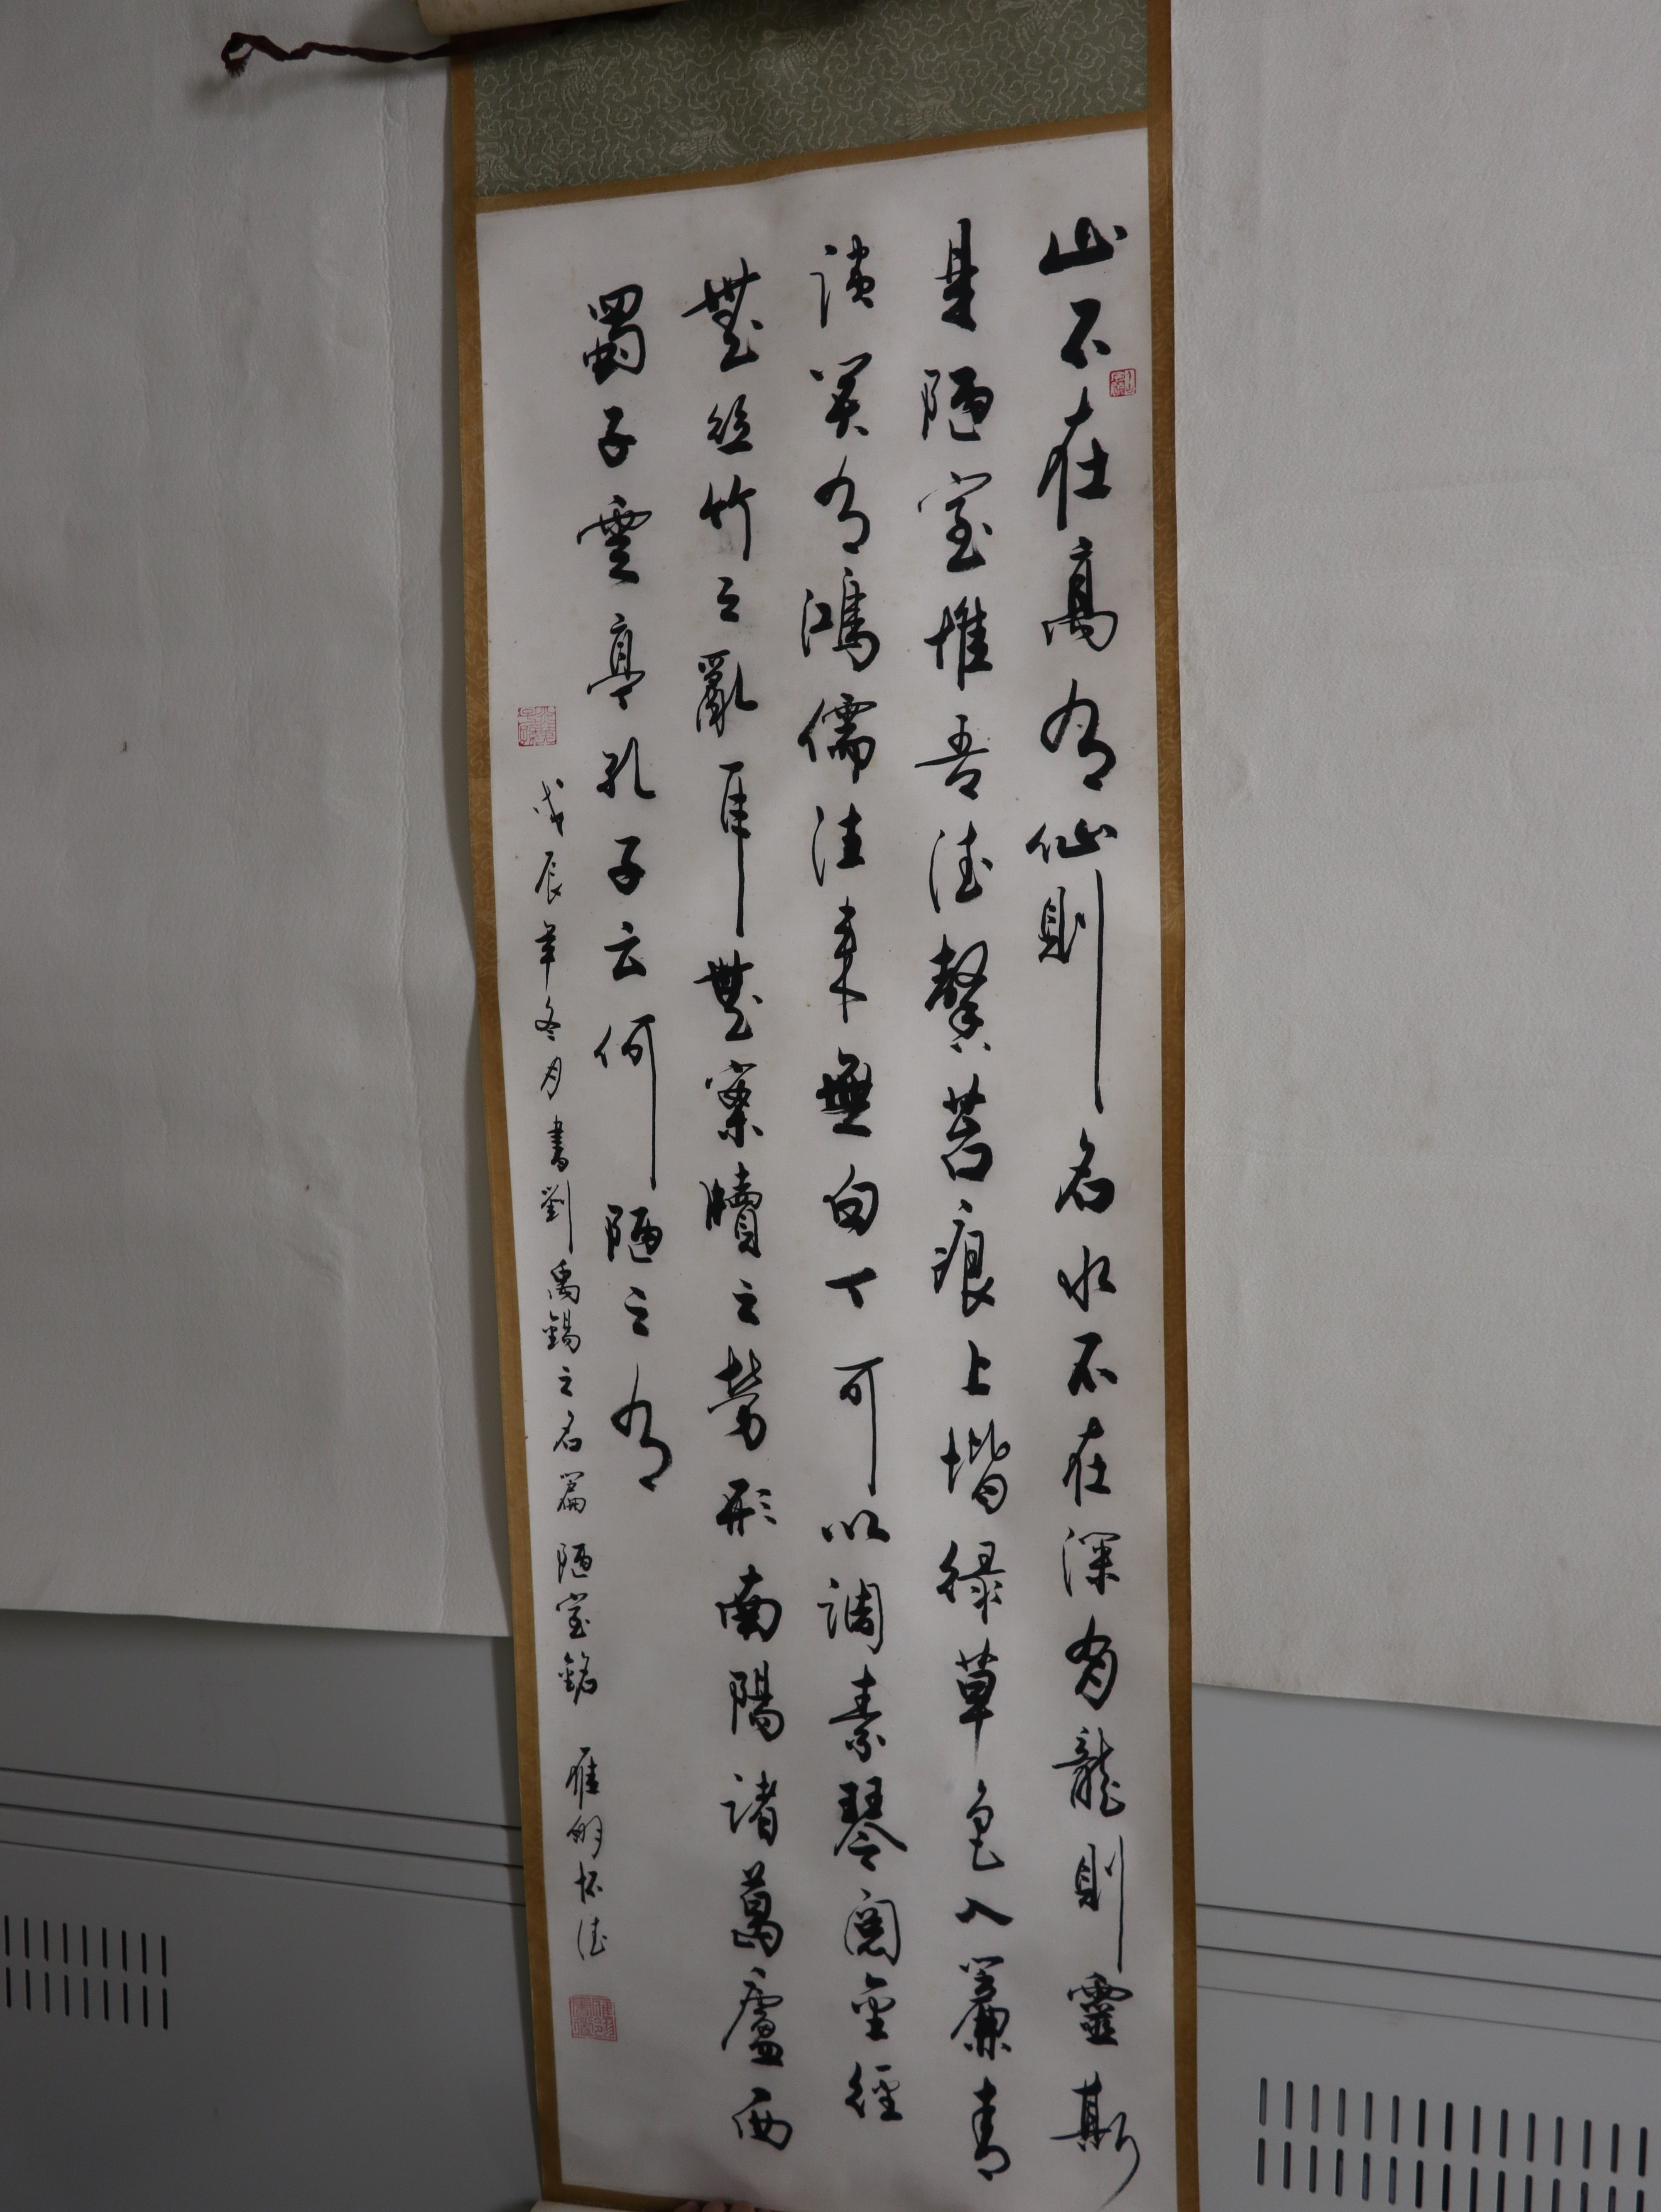 山不在高有仙則名水不在深有龍則靈斯
是陋室惟吾德馨苔痕上堦綠草色入簾青
談笑有鴻儒往来無白丁可以調素琴閱金經
無絲竹之亂耳無案牘之勞形南陽諸葛廬西
蜀子雲亭孔子云何陋之有
戊辰年冬月書劉禹錫之名篇陋室銘 怀德